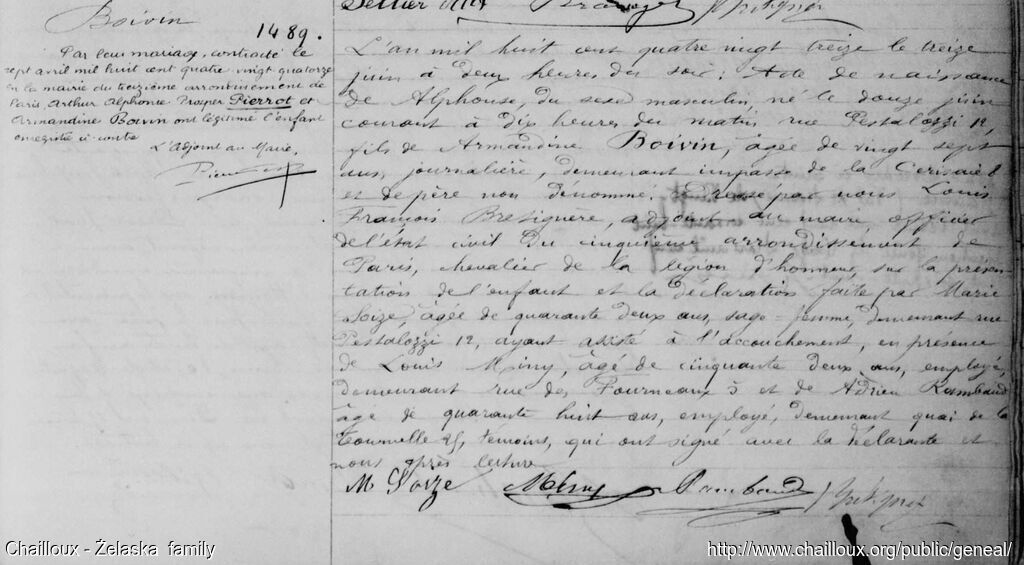 Boivin
1489.
Par leur mariage, contracté le
sept avril mil huit cent quatre vingt quatorze
en la mairie du treizième arrondissement de
Paris, Arthur Alphonse Prosper Pierrot et
Armandine Boivin ont légitimé l'enfant
enregistré ci-contre
L'adjoint au Maire,
L'an mil huit cent quatre vingt treize le treize
juin à deux heures du soir: Acte de naissance
de Alphonse, du sexe masculin, né le douze juin
courant à dix heures du matin rue Pestalozzi 12,
fils de Armandine Boivin, âgée de vingt sept
ans, journalière, demeurant impasse de la Cerisaie 8
et de père non dénommé. Dressé par nous Louis
François Bresignère, adjoint au maire officier
de l'état civil du cinquième arrondissement de
Paris, chevalier de la légion d'honneur, sur la présen-
tation de l'enfant et la déclaration faite par Marie
Soize, âgée de quarante deux ans, sage-femme, demeurant rue
Pestalozzi 12, ayant assisté à l'accouchement, en présence
de Louis Miny, âgé de cinquante deux ans, employé,
demeurant rue des Fourneaux 5 et de Adrien Rambaud
âgé de quarante huit ans, employé, demeurant quai de la
Tournelle, témoins, qui ont signé avec la déclarante et
nous après lecture
M Soize Miny Rambaud
Chailloux - Żelaska family
http://www.chailloux.org/public/geneal/